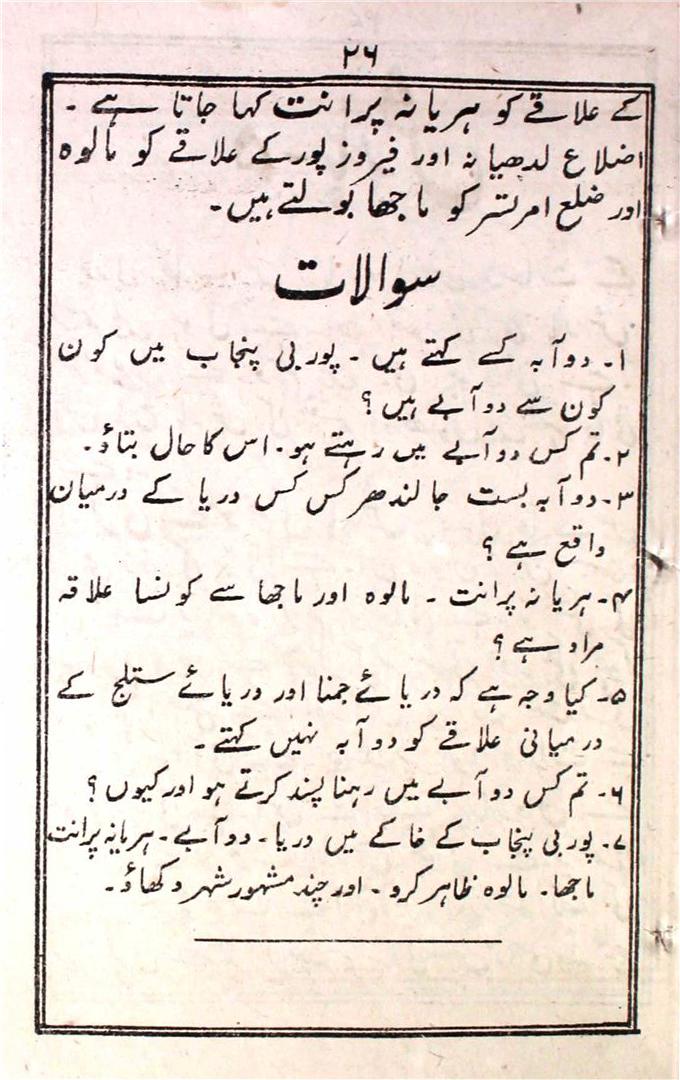 ۲۶
کے علاقے کو ہریانہ پرانت کہا جاتا ہے ۔
اضلاع لدھیانہ اور فیروز پور کے علاقے کو مالوہ
اور ضلع امرتسر کو ماجھا بولتے ہیں۔
سوالات
۱۔ دوآبہ کسے کہتے ہیں ۔ پوربی پنجاب میں کون
کون سے دوآبے ہیں ؟
۲۔ تم کس دوآبے میں رہتے ہو۔ اس کا حال بتاؤ۔
۳۔ دوآبہ بست جالندھر کس کس دریا کے درمیان
واقع ہے ؟
۴۔ ہریانہ پرانت ۔ مالوہ اور ماجھا سے کونسا علاقہ
مراد ہے ؟
۵۔ کیا وجہ ہے کہ دریائے جمنا اور دریائے ستلج کے
درمیانی علاقے کو دوآبہ نہیں کہتے ۔
۶۔ تم کس دوآبے میں رہنا پسند کرتے ہو اور کیوں ؟
۷۔ پوربی پنجاب کے خاکے میں دریا۔ دوآبے۔ ہریانہ پرانت
ماجھا۔ مالوہ ظاہر کرو ۔ اور چند مشہور شہر دکھاؤ۔